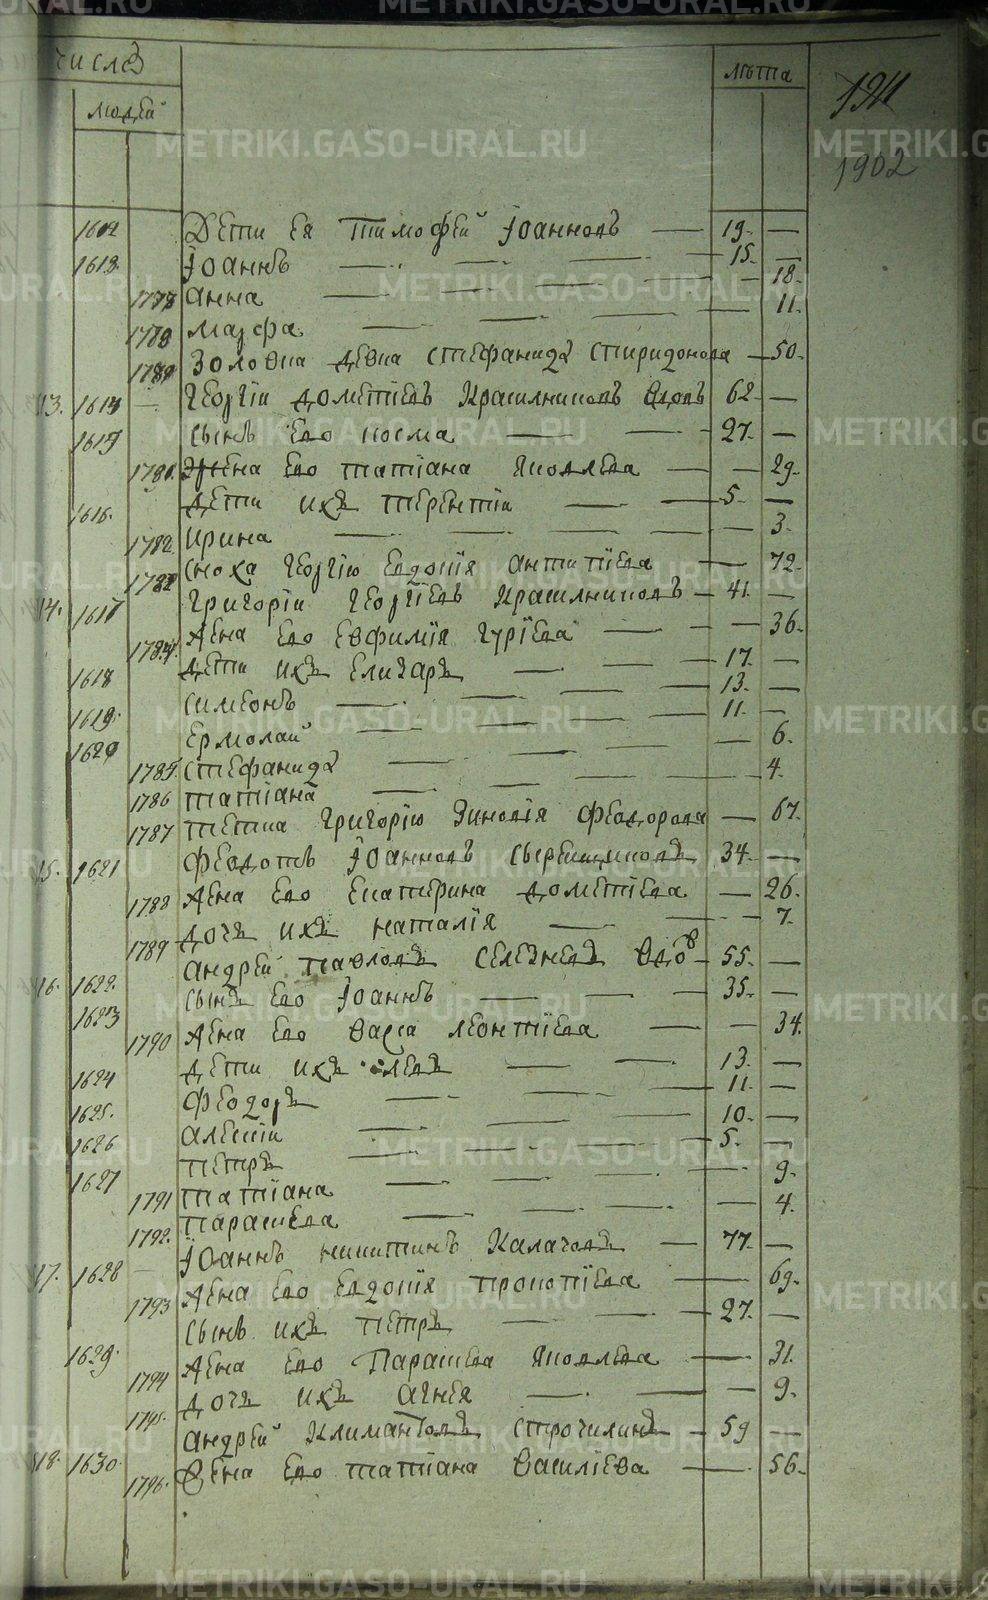 числѣ
людей
лѣта
1911
1902
1612 Дети ея Тимофей Іоанновъ — 19. —
1613. Іоаннъ — 15. —
1778 Анна — 18.
1779 Марфа — 11.
1780 Золовка девка Стефанида Спиридонова — 50.
13. 1614 Георгіи Дометіевъ Красилниковъ вдовъ 62 —
1615 Сынъ Его Косма — 27. —
1781. Жена Его Татіана Яковлева — 29.
1616. Дети ихъ Терентіи — 5. —
1782 Ирина — 3.
1783 Сноха Георгію Евдокія Антипіева — 72.
14. 1617 Григоріи Георгіевъ Красилниковъ — 41. —
1784. Жена Его Евфимія Гуріева — 36.
1618 Дети ихъ Елизаръ — 17. —
1619. Симеонъ — 13. —
1620 Ермолай — 11. —
1785 Стефанида — 6.
1786 Татіана — 4.
1787 Тетка Григорію Зиновія Феодорова — 67.
15. 1621 Федотъ Іоанновъ 34. —
1788 Жена Его Екатерина Дометіева — 26.
1789 Дочь ихъ Наталія — 7.
16. 1622. Андрей Павловъ Селезневъ вдовъ — 55. —
1623 Сынъ Его Іоаннъ — 35. —
1790 Жена Его Васса Леонтіева — 34.
1624 Дети ихъ — 13. —
1625. Феодоръ — 11. —
1626 Алексіи — 10. —
1627 Петръ — 5. —
1791 Татіана — 9.
1792. Парасковья — 4.
17. 1628 Іоаннъ Никитинъ Калачовъ — 77. —
1793 Жена Его Евдокія Прокопіева — 69.
1629. Сынъ ихъ Петръ — 27. —
1794 Жена Его Яковлева — 31.
1795. Дочь ихъ Агнія — 9.
18. 1630. Андрей Климантовъ Строчилинъ — 59 —
1796. Жена Его Татіана Василіева — 56.
METRIKI.GASO-URAL.RU